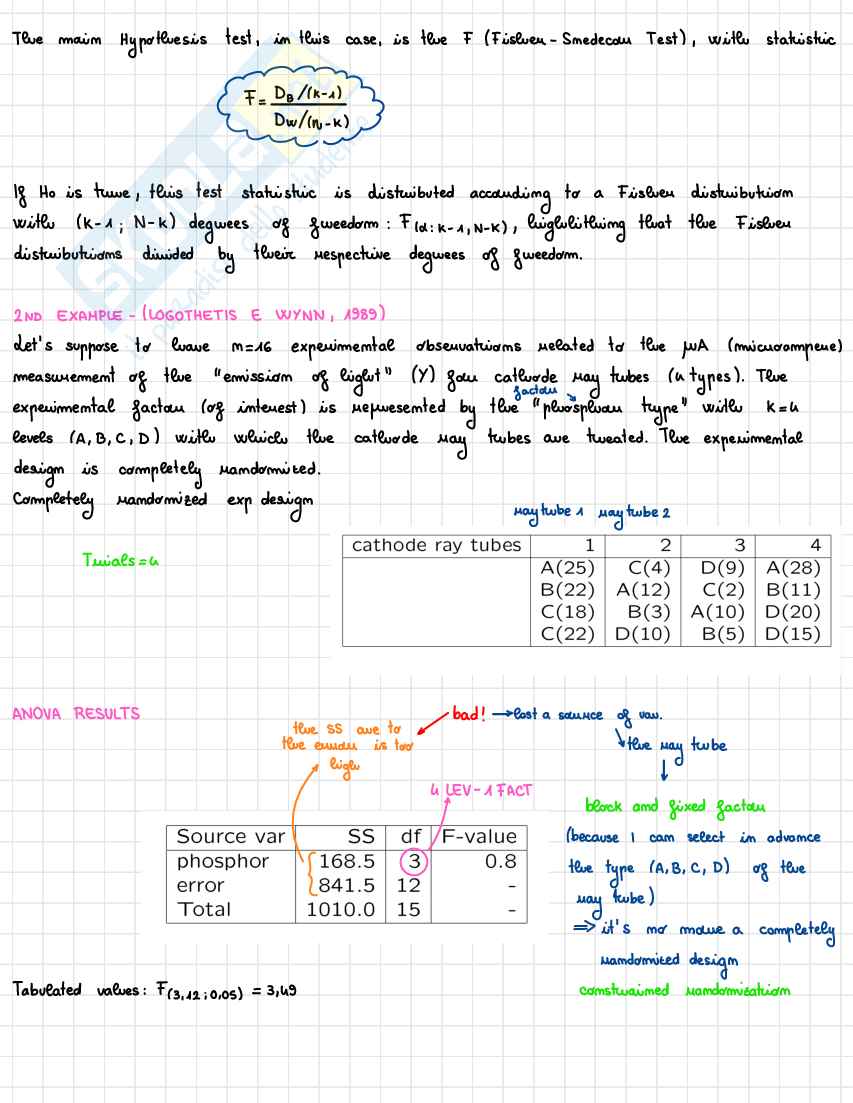 The main Hypothesis test, in this case, is the F (Fisher-Snedecor Test), with statistic
F = D_B/(k-1) / D_W/(n-k)
If H0 is true, this test statistic is distributed according to a Fisher distribution
with (k-1; N-k) degrees of freedom: F(α; k-1, N-k), highlithing that the Fisher
distributions divided by their respective degrees of freedom.
2ND EXAMPLE - (LOGOTHETIS E WYNN, 1989)
Let's suppose to have n=16 experimental observations related to the µA (microampere)
measurement of the "emission of light" (Y) for cathode ray tubes (4 types). The
factor
experimental factor (of interest) is represented by the "phosphor type" with k=4
levels (A, B, C, D) with which the cathode ray tubes are treated. The experimental
design is completely randomized.
Completely randomized exp design
ray tube 1 ray tube 2
Trials=4
cathode ray tubes 1 2 3 4
A(25) C(4) D(9) A(28)
B(22) A(12) C(2) B(11)
C(18) B(3) A(10) D(20)
C(22) D(10) B(5) D(15)
ANOVA RESULTS
bad! → lost a source of var.
the SS due to
the error is too
high
the ray tube
4 LEV-1 FACT
block and fixed factor
(because I can select in advance
the type (A, B, C, D) of the
ray tube)
⇒ it's no more a completely
randomized design
constrained randomization
Source var SS df F-value
phosphor 168.5 3 0.8
error 841.5 12 -
Total 1010.0 15 -
Tabulated values: F(3,12; 0,05) = 3,49
SKUOLA.net
il paradiso dello studente